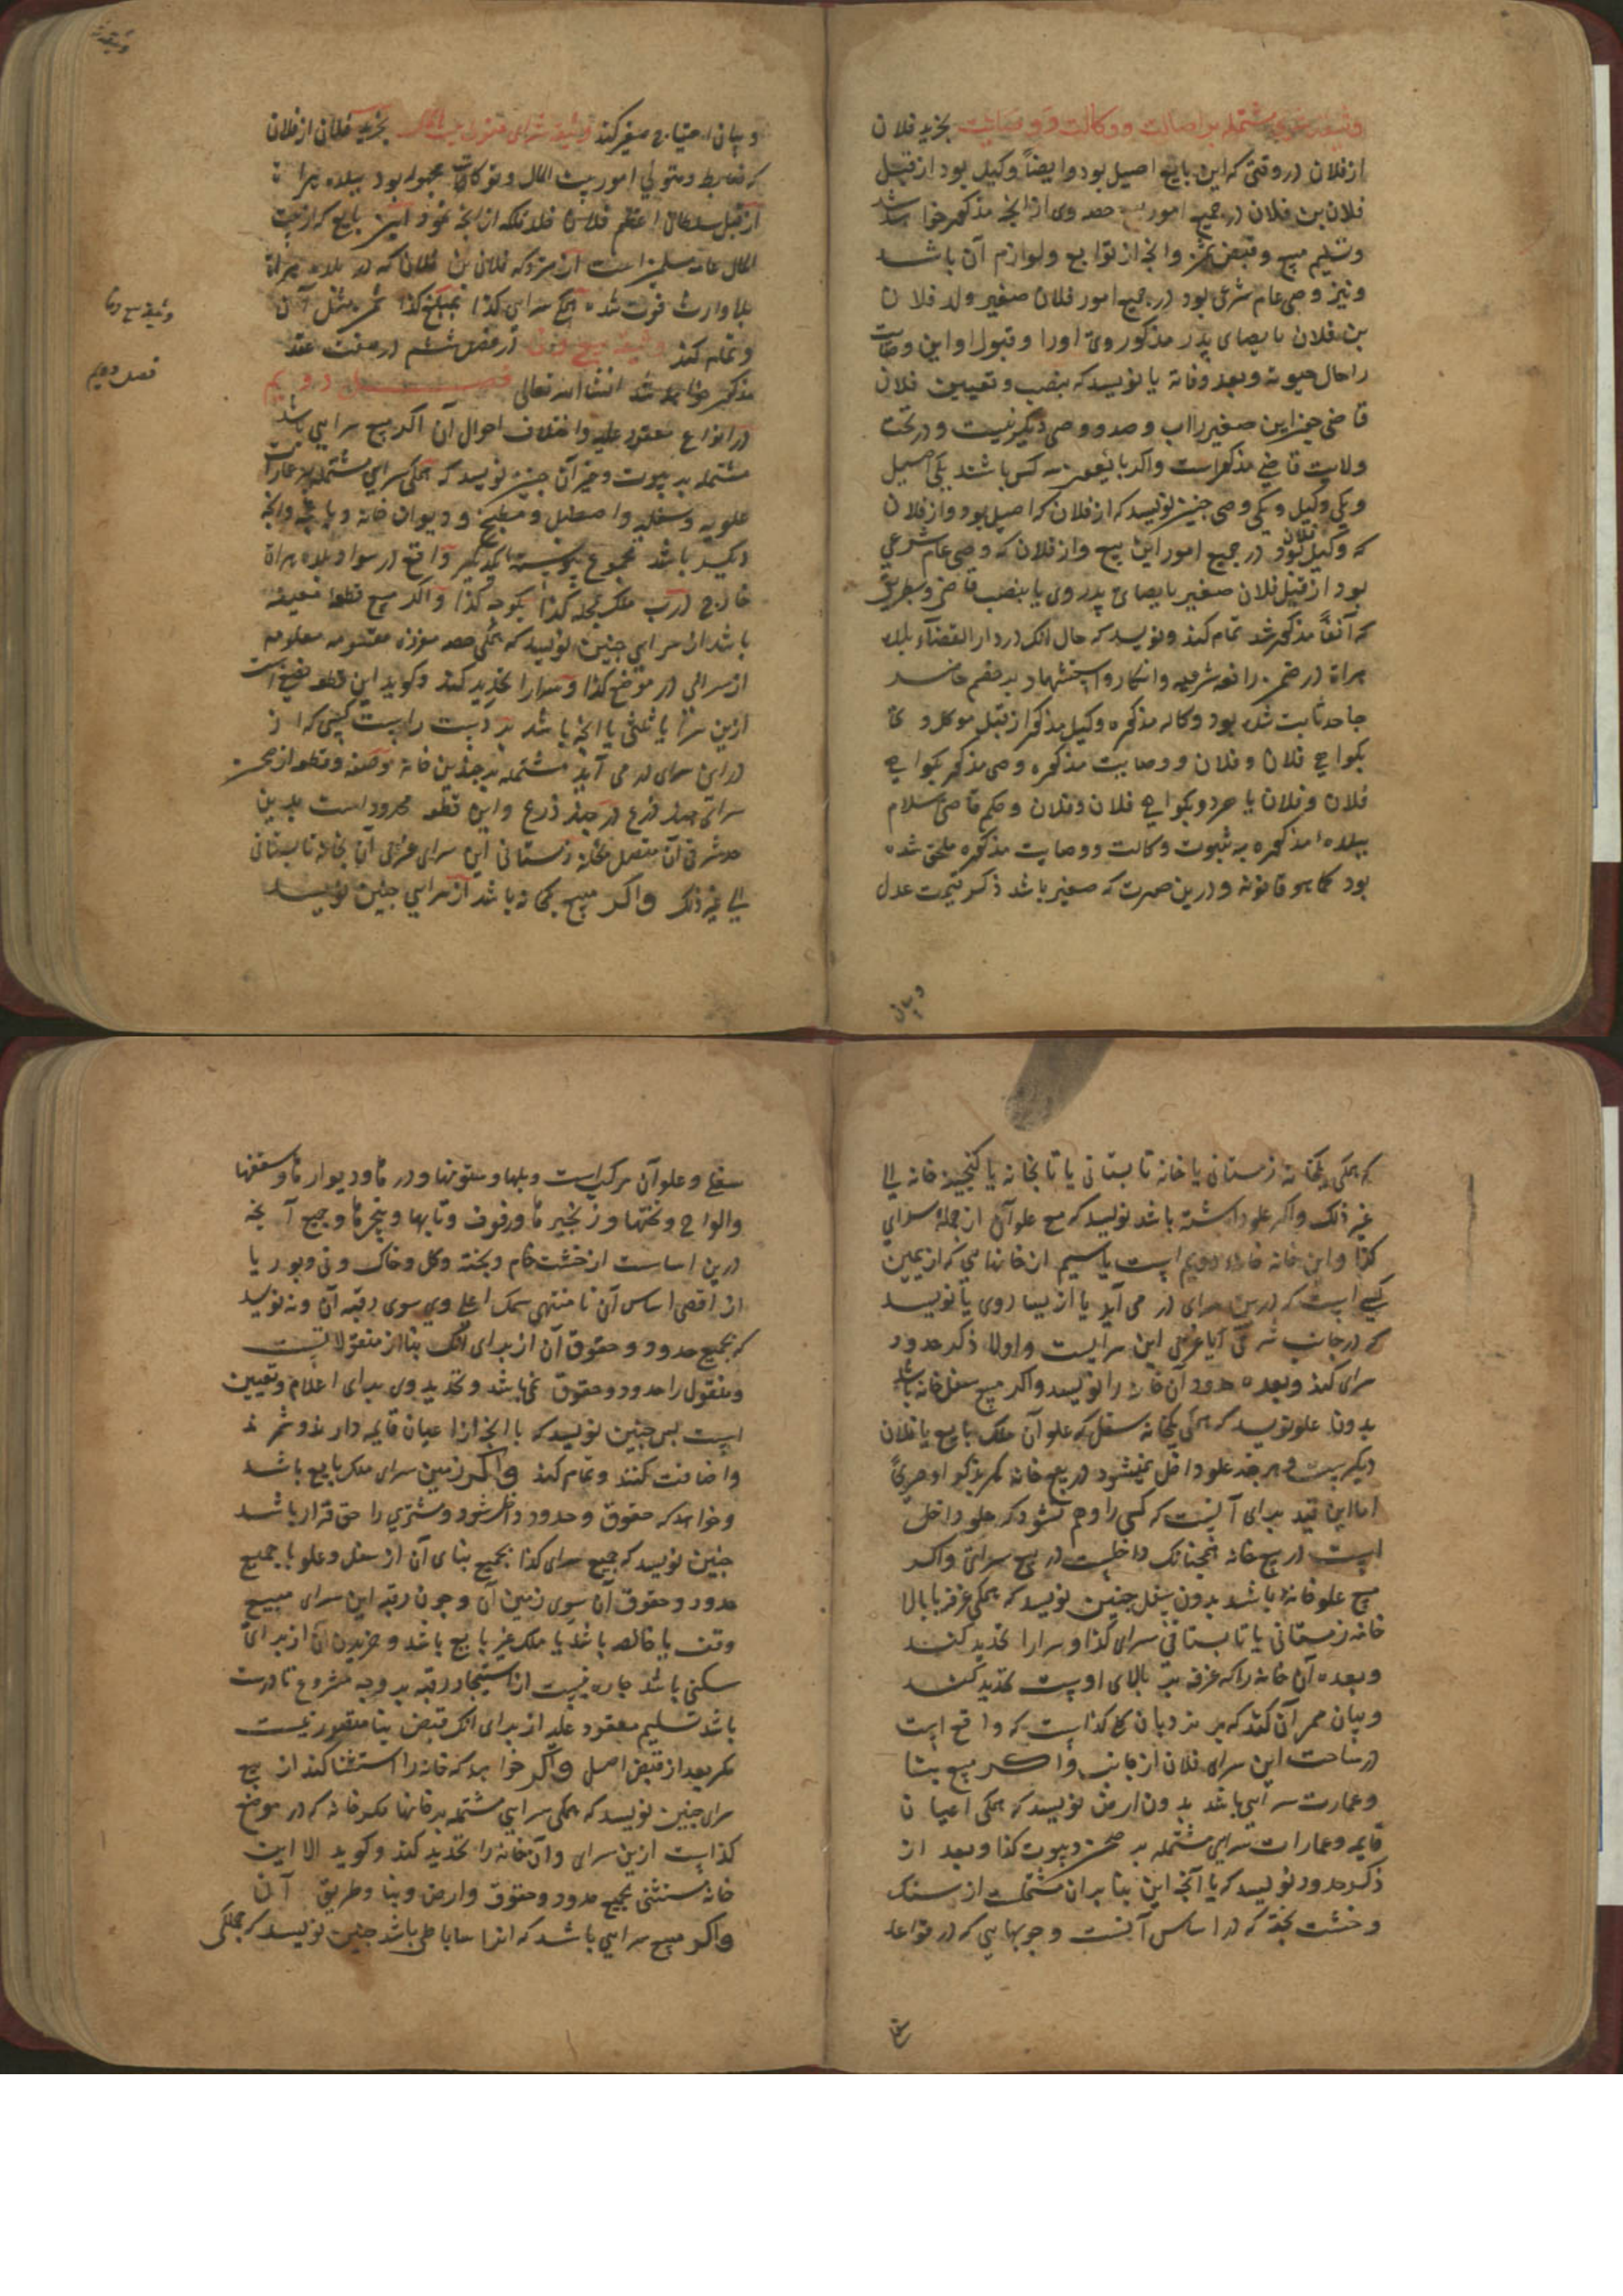 وثیقه شری مشتمله بر اصالت و وکالت و وصایت بخرید فلان
از فلان در وقتی که این بایع اصیل بود و ایضاً وکیل بود از قبل
فلان بن فلان در جمیع امور بیع حصه وی از آنجه مذکور خواهد شد
و تسلیم مبیع و قبض ثمن و آنجه از توابع و لوازم آن باشد
و نیز وصی عام شرعی بود در جمیع امور فلان صغیر ولد فلان
بن فلان بایصای پدر مذکور وی اورا و قبول او این وصایت
را حال حیوته و بعد وفاته یا نویسد که بنصب و تعیین فلان
قاضی جز این صغیر را اب و جد و وصی دیگر نیست و در تحت
ولایت قاضی مذکور است و اگر بایعین سه کس باشند یکی اصیل
و یکی وکیل و یکی وصی جنین نویسد که از فلان که اصیل بود و از فلان
که وکیل فلان بود در جمیع امور این بیع و از فلان که وصی عام شرعی
بود از قبل فلان صغیر بایصای پدر وی یا بنصب قاضی و بطریق
که آنفاً مذکور شد تمام کند و نویسد که حال آنک در دار القضاء بلده
هراة در ضمن مرافعه شرعیه و انکار و استشهاد بر خصم حاضر
جاحد ثابت شده بود وکاله مذکوره وکیل مذکور از قبل موکل وی
بکواهی فلان و فلان و وصایت مذکوره وصی مذکور بکواهی
فلان و فلان یا هر دو بکواهی فلان و فلان و حکم قاضی اسلام
ببلده مذکوره به ثبوت وکالت و وصایت مذکوره ملحق شده
بود کما هو قانونه و درین صورت که صغیر باشد ذکر قیمت عدل
و بیان
و بیان احتیاج صغیر کند وثیقه شرای از بیت المال بخرید فلان از فلان
که ضابط و متولی امور بیت المال بود ببلده هراة
از قبل سلطان اعظم فلان خلد ملکه از آنجه نمود این بایع که از بیت
المال عامه مسلمین است از متروکه فلان بن فلان که در بلده هراة
بلا وارث فوت شده همکی سرای کذا بمبلغ کذا ثمن مثل آن
و تمام کند وثیقه بیع وفا در فصل ششم در صفت عقد
مذکور خواهد شد انشاالله تعالی فصل دویم
در انواع معقود علیه و اختلاف احوال آن اگر مبیع سرایی باشد
مشتمله بر بیوت و غیر آن جنین نویسد که همکی سرایی مشتمله بر عمارات
علویه و سفلیه و اصطبل و مطبخ و دیوان خانه و باغچه و آنجه
دیگر باشد مجموع پیوسته یکدیگر واقع در سواد بلده هراة
خارج درب ملک بمحله کذا بکوجه کذا و اگر مبیع قطعه معینه
باشد از سرایی جنین نویسد که همکی حصه مفرزه مقسومه معلومه
از سرایی در موضع کذا و سرا را تحدید کند و کوید این قطعه نصف است
ازین سرا یا ثلثی یا آنجه باشد بر دست راست کسی که از
در این سرای در می آید مشتمله بر جندین خانه موصوفه و قطعه از صحن
سرای جند ذرع در جند ذرع و این قطعه محدود است بدین
حد شرقی آن متصل بخانه زمستانی این سرای غربی آن بخانه تابستانی
الی غیر ذلک و اگر مبیع یکخانه باشد از سرایی جنین نویسد
وثیقه بیع وفا
فصل دویم
که همکی یکخانه زمستانی یا خانه تابستانی یا تابخانه یا کنجینه خانه الی
غیر ذلک و اگر علو داشته باشد نویسد که مع علو آن از جمله سرای
کذا و این خانه خانه دویم است یا سیم از خانهایی که از یمین
کسی است که درین سرای در می آید یا از یسار وی یا نویسد
که در جانب شرقی یا غربی این سرایست و اولا ذکر حدود
سرای کند و بعده حدود آن خانه را نویسد و اگر مبیع سفل خانه باشد
بدون علو نویسد که همکی یکخانه سفل که علو آن ملک بایع یا فلان
دیگریست و هر چند علو داخل نمیشود در بیع خانه مگر بذکر او صریحاً
اما این قید برای آنست که کسی را وهم نشود که علو داخل
است در بیع خانه همجنانک داخلست در بیع سرای و اگر
مبیع علو خانه باشد بدون سفل جنین نویسد که همکی غرفه بالا
خانه زمستانی یا تابستانی سرای کذا و سرا را تحدید کنند
و بعده آن خانه را که غرفه بر بالای اوست تحدید کنند
و بیان ممر آن کند که بر نردبان کذا است که واقع است
در ساحت این سرای فلان از جانب و اگر مبیع بنا
و عمارت سرایی باشد بدون ارض نویسد که همکی اعیان
قایمه و عمارات سرایی مشتمله بر صحن و بیوت کذا و بعد از
ذکر حدود نویسد که با آنچه این بنا بران مشتملست از سنک
و خشت پخته که در اساس آنست و جوبهایی که در قواعد
سفل
سفل و علو آن مرکب است و پلها و ستونها و درها و دیوارها و سقفها
و الواح و تختها و زنجیرها و رفوف و تابها و پنجرها و جمیع آنجه
درین اساست از خشت خام و پخته و کل و خاک و نی و بوریا
از اقصی اساس آن تا منتهی سمک اعلی وی سوی رقبه آن و نه نویسد
که بجمیع حدود و حقوق آن از برای آنک بنا از منقولاتست
و منقول را حدود و حقوق نمی باشد و تحدید وی برای اعلام و تعیین
است پس جنین نویسد که با آنجه از اعیان قایمه دارند و شمرند
و اضافت کنند و تمام کند و اگر زمین سرای ملک بایع باشد
و خواهد که حقوق و حدود داخل شود و مشتری را حق قرار باشد
جنین نویسد که جمیع سرای کذا بجمیع بنای آن از سفل و علو با جمیع
حدود و حقوق آن سوی زمین آن و جون رقبه این سرای مبیع
وقف یا خالصه باشد یا ملک غیر بایع باشد و خریدن آن از برای
سکنی باشد چاره نیست از استیجار رقبه بر وجه مشروع تا درست
باشد تسلیم معقود علیه از برای آنک قبض بنا متصور نیست
مگر بعد از قبض اصل و اگر خواهد که خانه را استثنا کند از بیع
سرای جنین نویسد که همکی سرایی مشتمله بر خانها مگر خانه که در موضع
کذاست ازین سرای و آن خانه را تحدید کند و کوید الا این
خانه مستثنی بجمیع حدود و حقوق و ارض و بنا و طریق آن
و اگر مبیع سرایی باشد که انرا ساباطی باشد جنین نویسد که جملکی